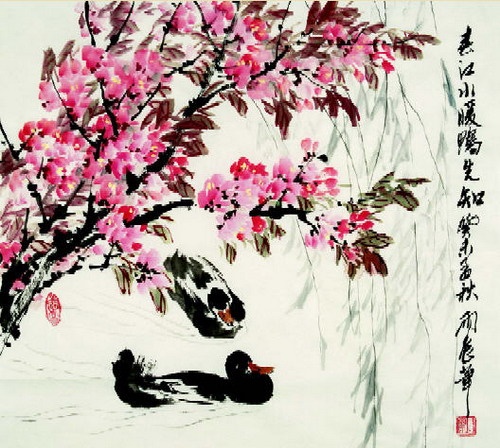 春江水暖鴨先知癸未孟秋周